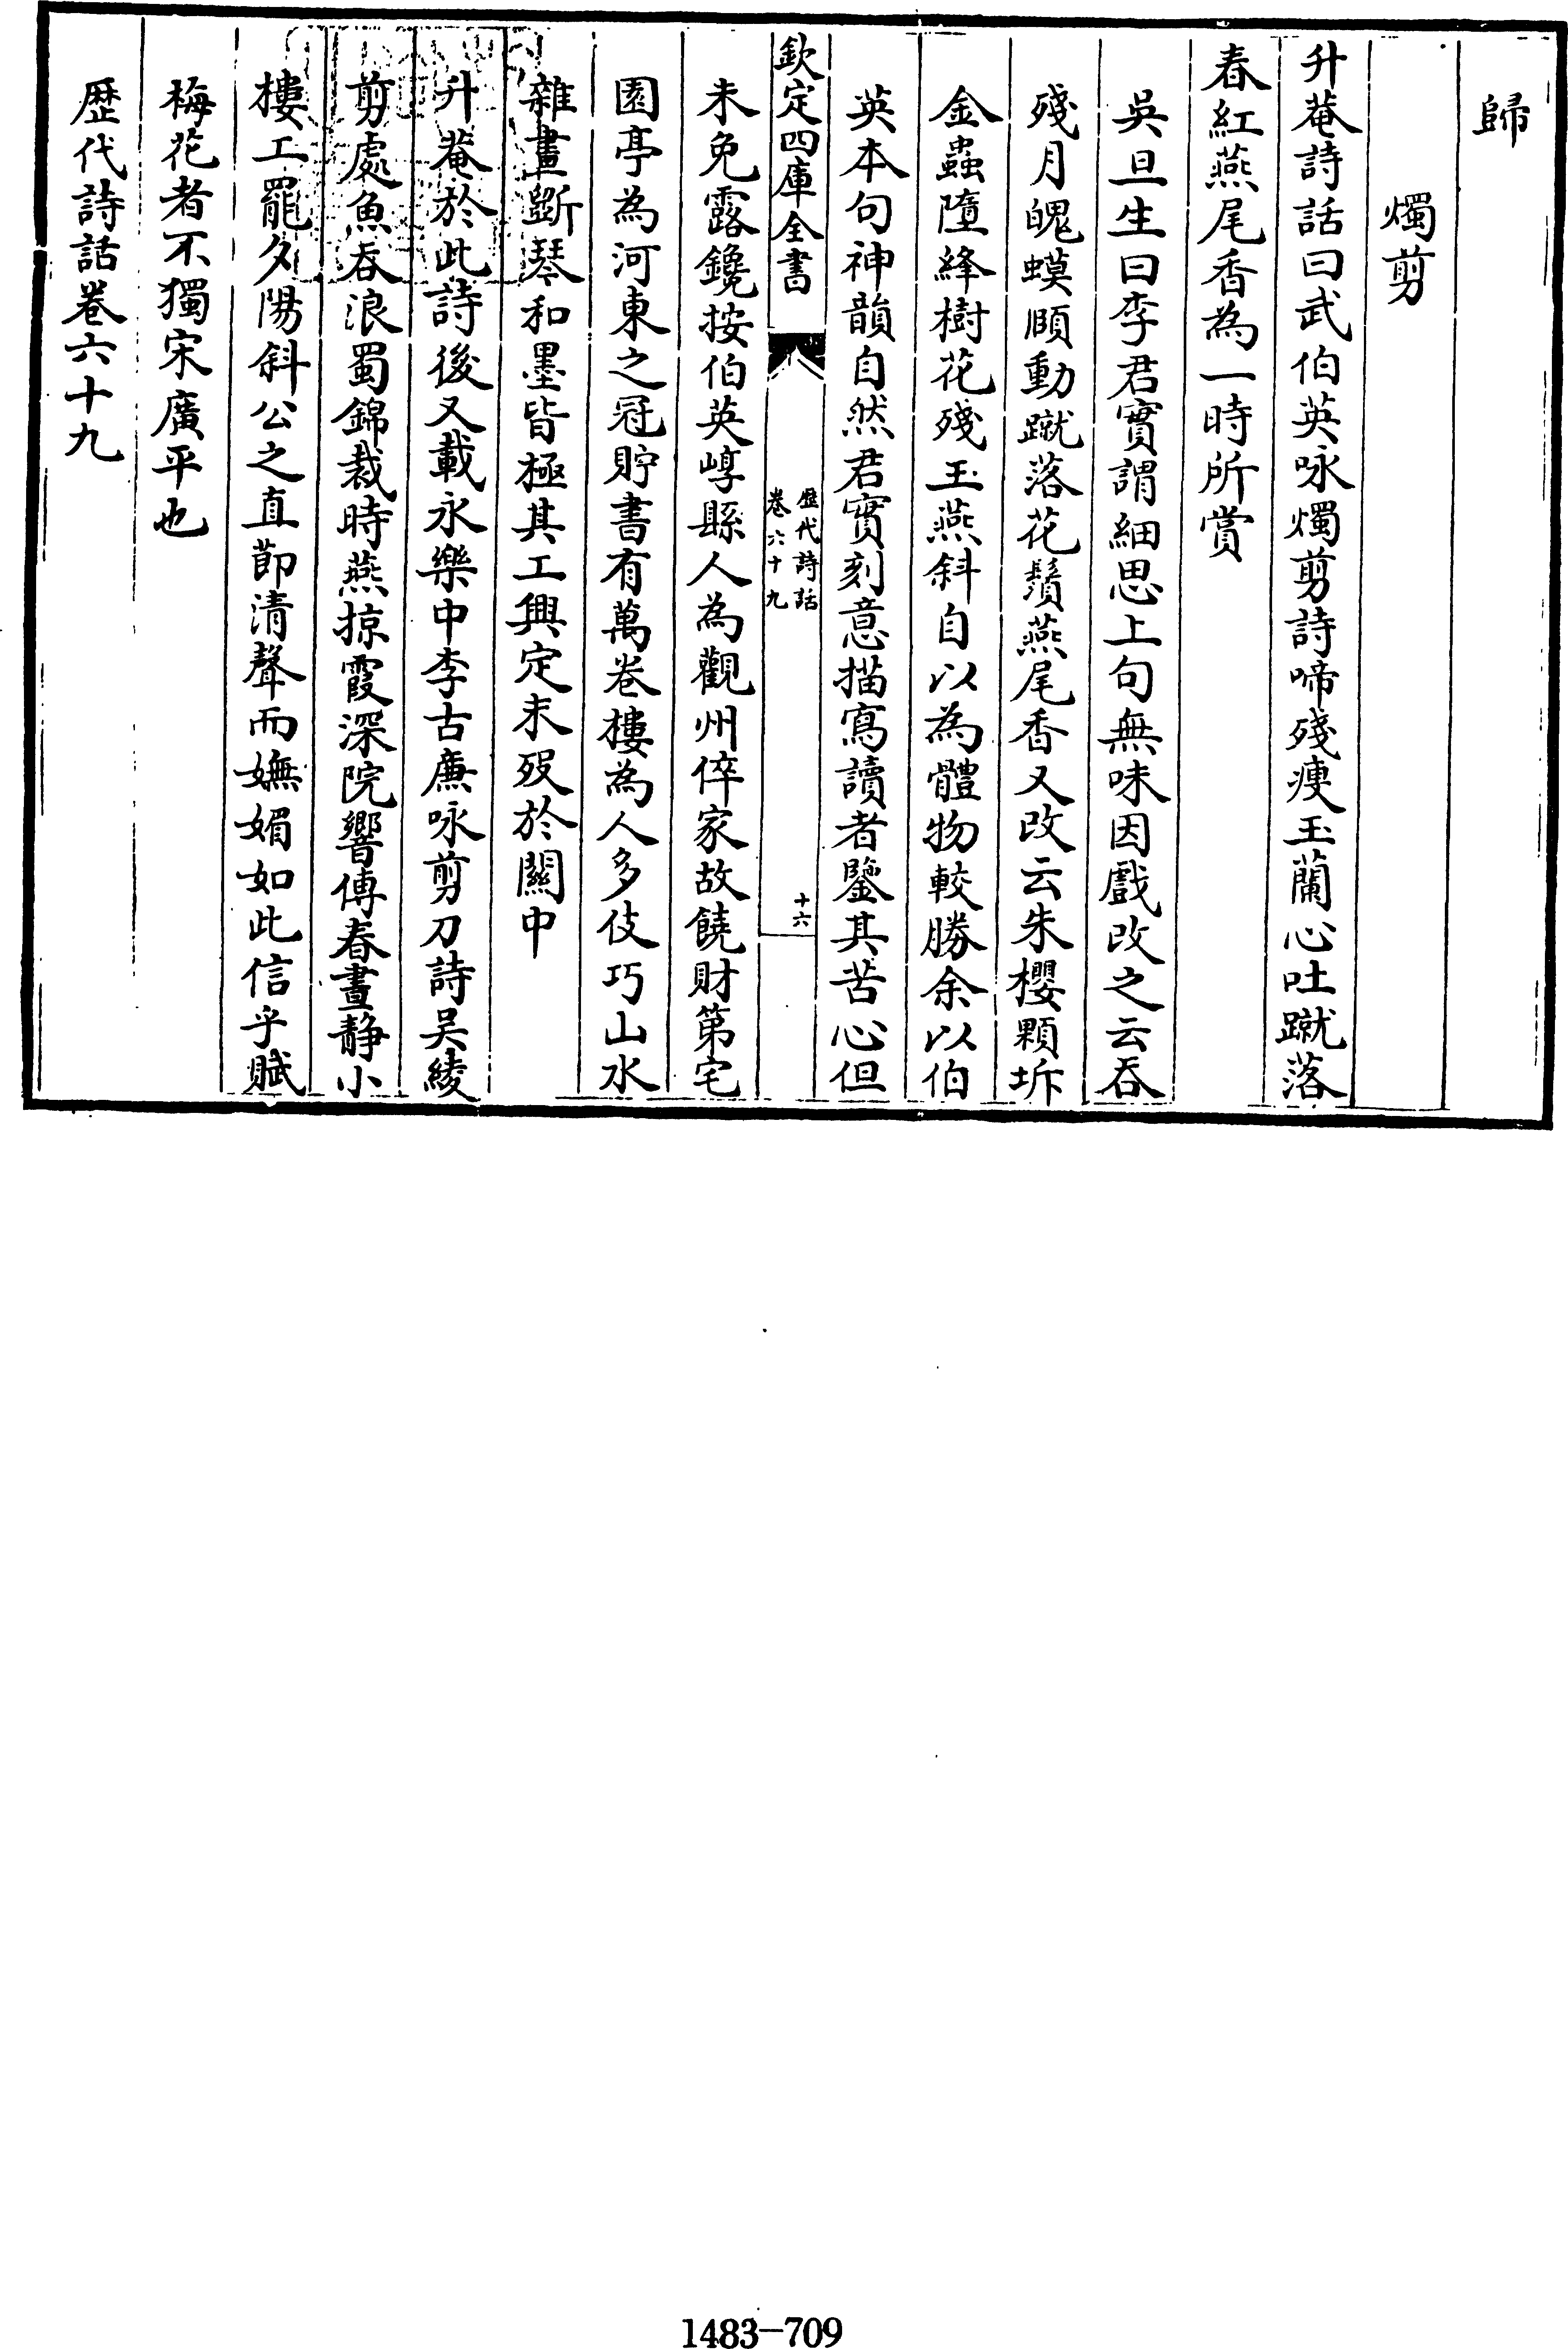 歸
燭剪
升菴詩話曰武伯英咏燭剪詩啼殘瘦玉蘭心吐蹴落
春紅燕尾香為一時所賞
吳旦生曰李君實謂細思上句無味因戲改之云吞
殘月魄蟆頤動蹴落花鬚燕尾香又改云朱櫻顆坼
金蟲墮絳樹花殘玉燕斜自以為體物較勝余以伯
英本句神韻自然君實刻意描寫讀者鑒其苦心但
欽定四庫全書
歴代詩話
卷六十九
十六
未免露鑱按伯英崞縣人為觀州倅家故饒財第宅
園亭為河東之冠貯書有萬卷樓為人多伎巧山水
雜畫斵琴和墨皆極其工興定末歿於關中
升菴於此詩後又載永樂中李古廉咏剪刀詩吳綾
剪處魚吞浪蜀錦裁時燕掠霞深院響傳春晝靜小
樓工罷夕陽斜公之直節清聲而嫵媚如此信乎賦
梅花者不獨宋廣平也
歴代詩話卷六十九
1483-709